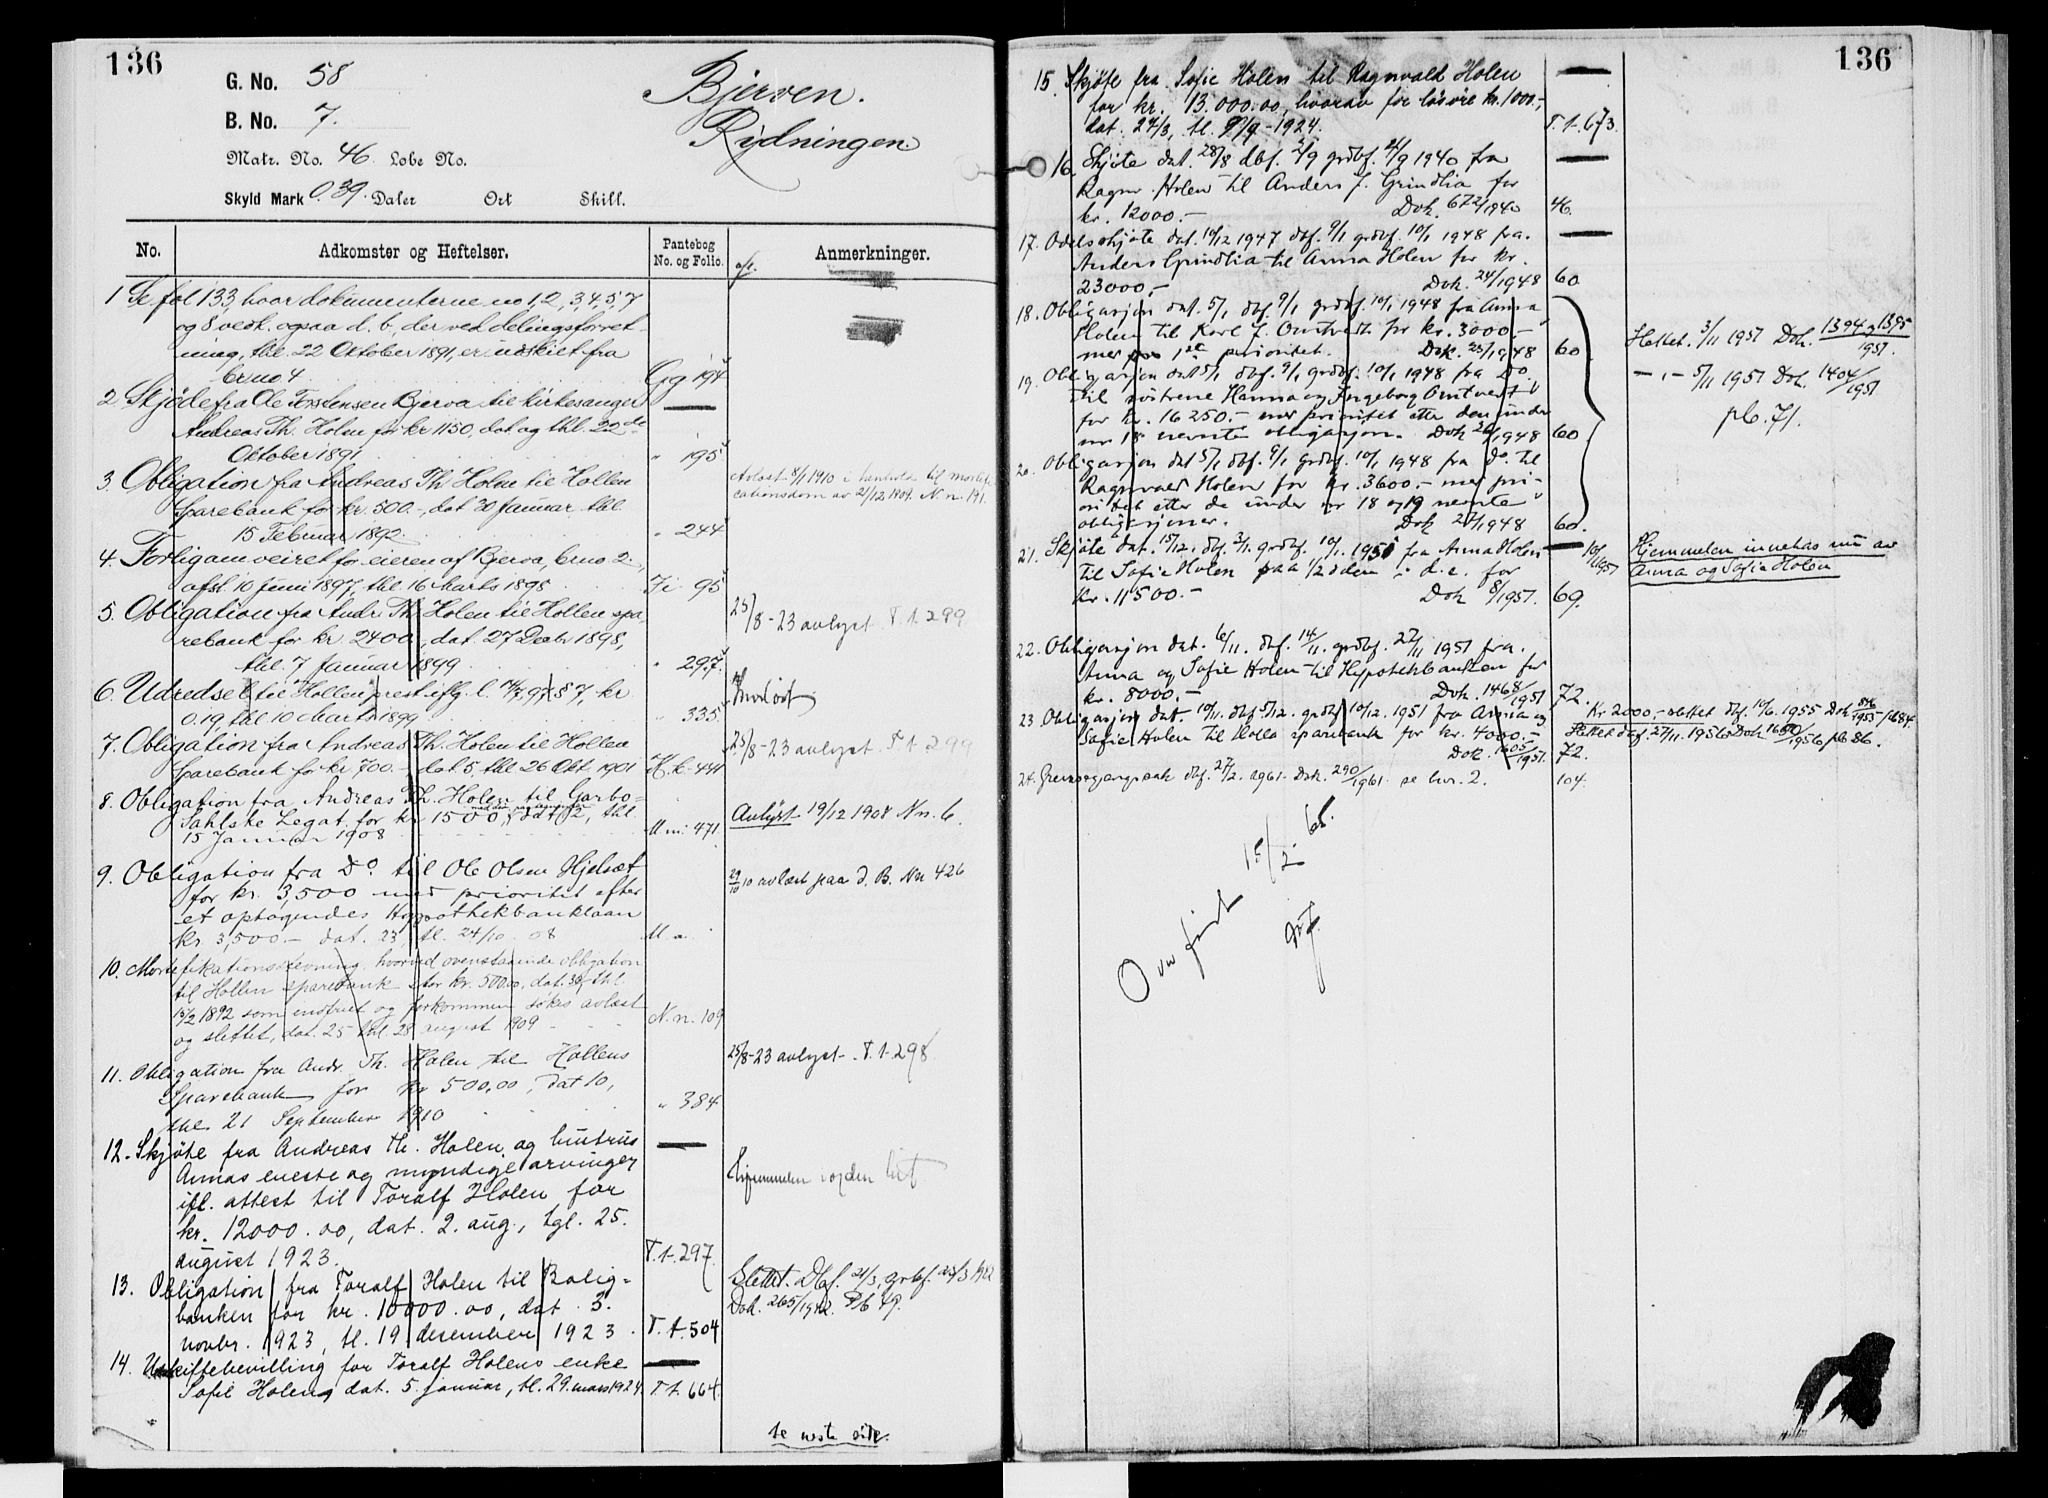 136
G. No. 58
B. No. 7.
Matr. No. 46. Løbe No.
Skyld Mark 0.39. Daler Ort Skill.
Bjerven.
Rydningen.
No. Adkomster og Heftelser. Pantebog No. og Folio. Anmerkninger.
1 Se fol 133, hvor dokumenterne no 1, 2, 3, 4, 5, 7
og 8 vedk. ogsaa d. b., der ved delingsforret-
ning, thl. 22 Oktober 1891, er udskilt fra
brno 4 Gg 194
2. Skjøde fra Ole Torstensen Bjerva til kirkesanger
Andreas Th. Holen for kr 1150, dat og thl. 22de
Oktober 1891 " 195
3. Obligation fra Andreas Th Holen til Hollen
Sparebank for kr. 500.-, dat 30 Januar, thl
15 Februar 1892 " 244
Avlæst 8/1 1910 i henhold til mortifi-
cationsdom av 21/12 1909. N. n. 191.
4. Forlig om veiret for eieren af Bjerva, brno 2.
afsl. 10 Juni 1897, thl 16 Marts 1898 Ii 95
5. Obligation fra Andr. Th. Holen til Hollen spa-
rebank for kr 2400, dat. 27 Decbr 1898,
thl. 7 Januar 1899 " 297.
25/8-23 avlyst T. t. 299
6. Udredsel til Hollen prest iflg. l. 97 § 7, kr
0.19, thl 10 Marts 1899 " 335
Avløst
7. Obligation fra Andreas Th. Holen til Hollen
Sparebank for kr 700.-, dat 5, thl 26 Okt. 1901 K. k. 441
25/8-23 avlyst. T. t. 299
8. Obligation fra Andreas Th. Holen til Garbo-
Sahlske Legat for kr 1500, dat 2, thl.
15 Januar 1908 M m. 471
Avlyst 19/12 1908 N n. 6.
9. Obligation fra Do til Ole Olsen Hjelsæt
for kr. 3,500 med prioritet efter
et optagendes Hypothekbanklaan
kr 3,500.- dat. 23, tl. 24/10 08 M
29/10 10 avlæst paa d. B. Nn 426
10. Mortifikationsstevning, hvorved ovenstaaende obligation
til Hollen sparebank stor kr. 500.00, dat. 30/1, thl.
15/2 1892 som indfriet og forkommen søkes avlæst
og slettet, dat. 25 thl. 28 august 1909 N. n. 109
11. Obligation fra Andr. Th. Holen til Hollens
Sparebank for kr 500,00, dat 10,
thl. 21 September 1910 " 384
25/8-23 avlyst. T. t. 298.
12. Skjøte fra Andreas th. Holen og hustrus
Annas eneste og myndige arvinger
ifl. attest til Toralf Holen for
kr. 12000.00, dat. 2. aug., tgl. 25.
august 1923. T. t. 297.
Hjemmelen i orden hit
13. Obligation fra Toralf Holen til Bolig-
banken for kr. 10000.00, dat. 3.
novbr. 1923, tl. 19. desember 1923. T. t. 504
Slettet. Dbf. 21/3, grbf. 23/3 1942
Dok. 265/1942. Pb 49.
14. Uskiftebevilling for Toralf Holens enke
Sofie Holen, dat. 5. januar, tl. 29. mars 1924. T t. 664.
se neste side.
136
15. Skjøte fra Sofie Holen til Ragnvald Holen
for kr. 13.000.00, hvorav for løsøre kr. 1000.-,
dat. 27/3, tl. 9/9-1924. T. t. 673.
16. Skjøte dat. 28/8 dbf. 2/9 grdbf. 4/9 1940 fra
Ragnv. Holen til Anders J. Grindlia for
kr. 12000.- Dok. 672/1940 46.
17. Odelsskjøte dat. 10/12 1947 dbf. 9/1 grdbf. 10/1 1948 fra
Anders Grindlia til Anna Holen for kr.
23000,- Dok. 24/1948 60
18. Obligasjon dat. 5/1 dbf. 9/1 grdbf. 10/1 1948 fra Anna
Holen til Karl J. Omtvedt for kr. 3000.-
med 1ste prioritet. Dok. 25/1948 60
Slettet. 3/11 1951 Dok. 1394 og 1395/1951.
19. Obligasjon dat 5/1 dbf. 9/1 grdbf. 10/1 1948 fra Do.
til søstrene Hanna og Ingeborg Omtvedt
for kr. 16 250.- med prioritet etter den under
nr 18 nevnte obligasjon. Dok 26/1948 60
- " - 5/11 1951 Dok. 1404/1951
pb. 71.
20. Obligasjon dat 5/1 dbf. 9/1 grdbf. 10/1 1948 fra do. til
Ragnvald Holen for kr. 3600.- med pri-
oritet etter de under nr 18 og 19 nevnte
obligasjoner. Dok 27/1948 60.
21. Skjøte dat. 15/12. dbf. 3/1. grdbf. 10/1. 1951 fra Anna Holen
til Sofie Holen paa 1/2 delen i d. e. for
kr. 11500.- Dok 8/1951. 69.
10/1 1951 Hjemmelen innehas nu av
Anna og Sofie Holen
22. Obligasjon dat. 6/11. dbf. 14/11. grdbf. 27/11 1951 fra
Anna og Sofie Holen til Hypotekbanken for
kr. 8000.- Dok. 1468/1951 72.
23. Obligasjon dat. 10/11. dbf 5/12. grdbf 10/12. 1951 fra Anna og
Sofie Holen til Holla sparebank for kr. 4000.-
Dok. 1605/1951. 72.
Kr 2000.- slettet dbf. 10/6. 1955 Dok 846/1955 pb 84.
Slettet dbf. 27/11. 1956 Dok 1600/1956 pb 86.
24. Grensegangssak dbf. 27/2. 1961. Dok. 290/1961. se bnr. 2. 104.
Overført 15/2 65.